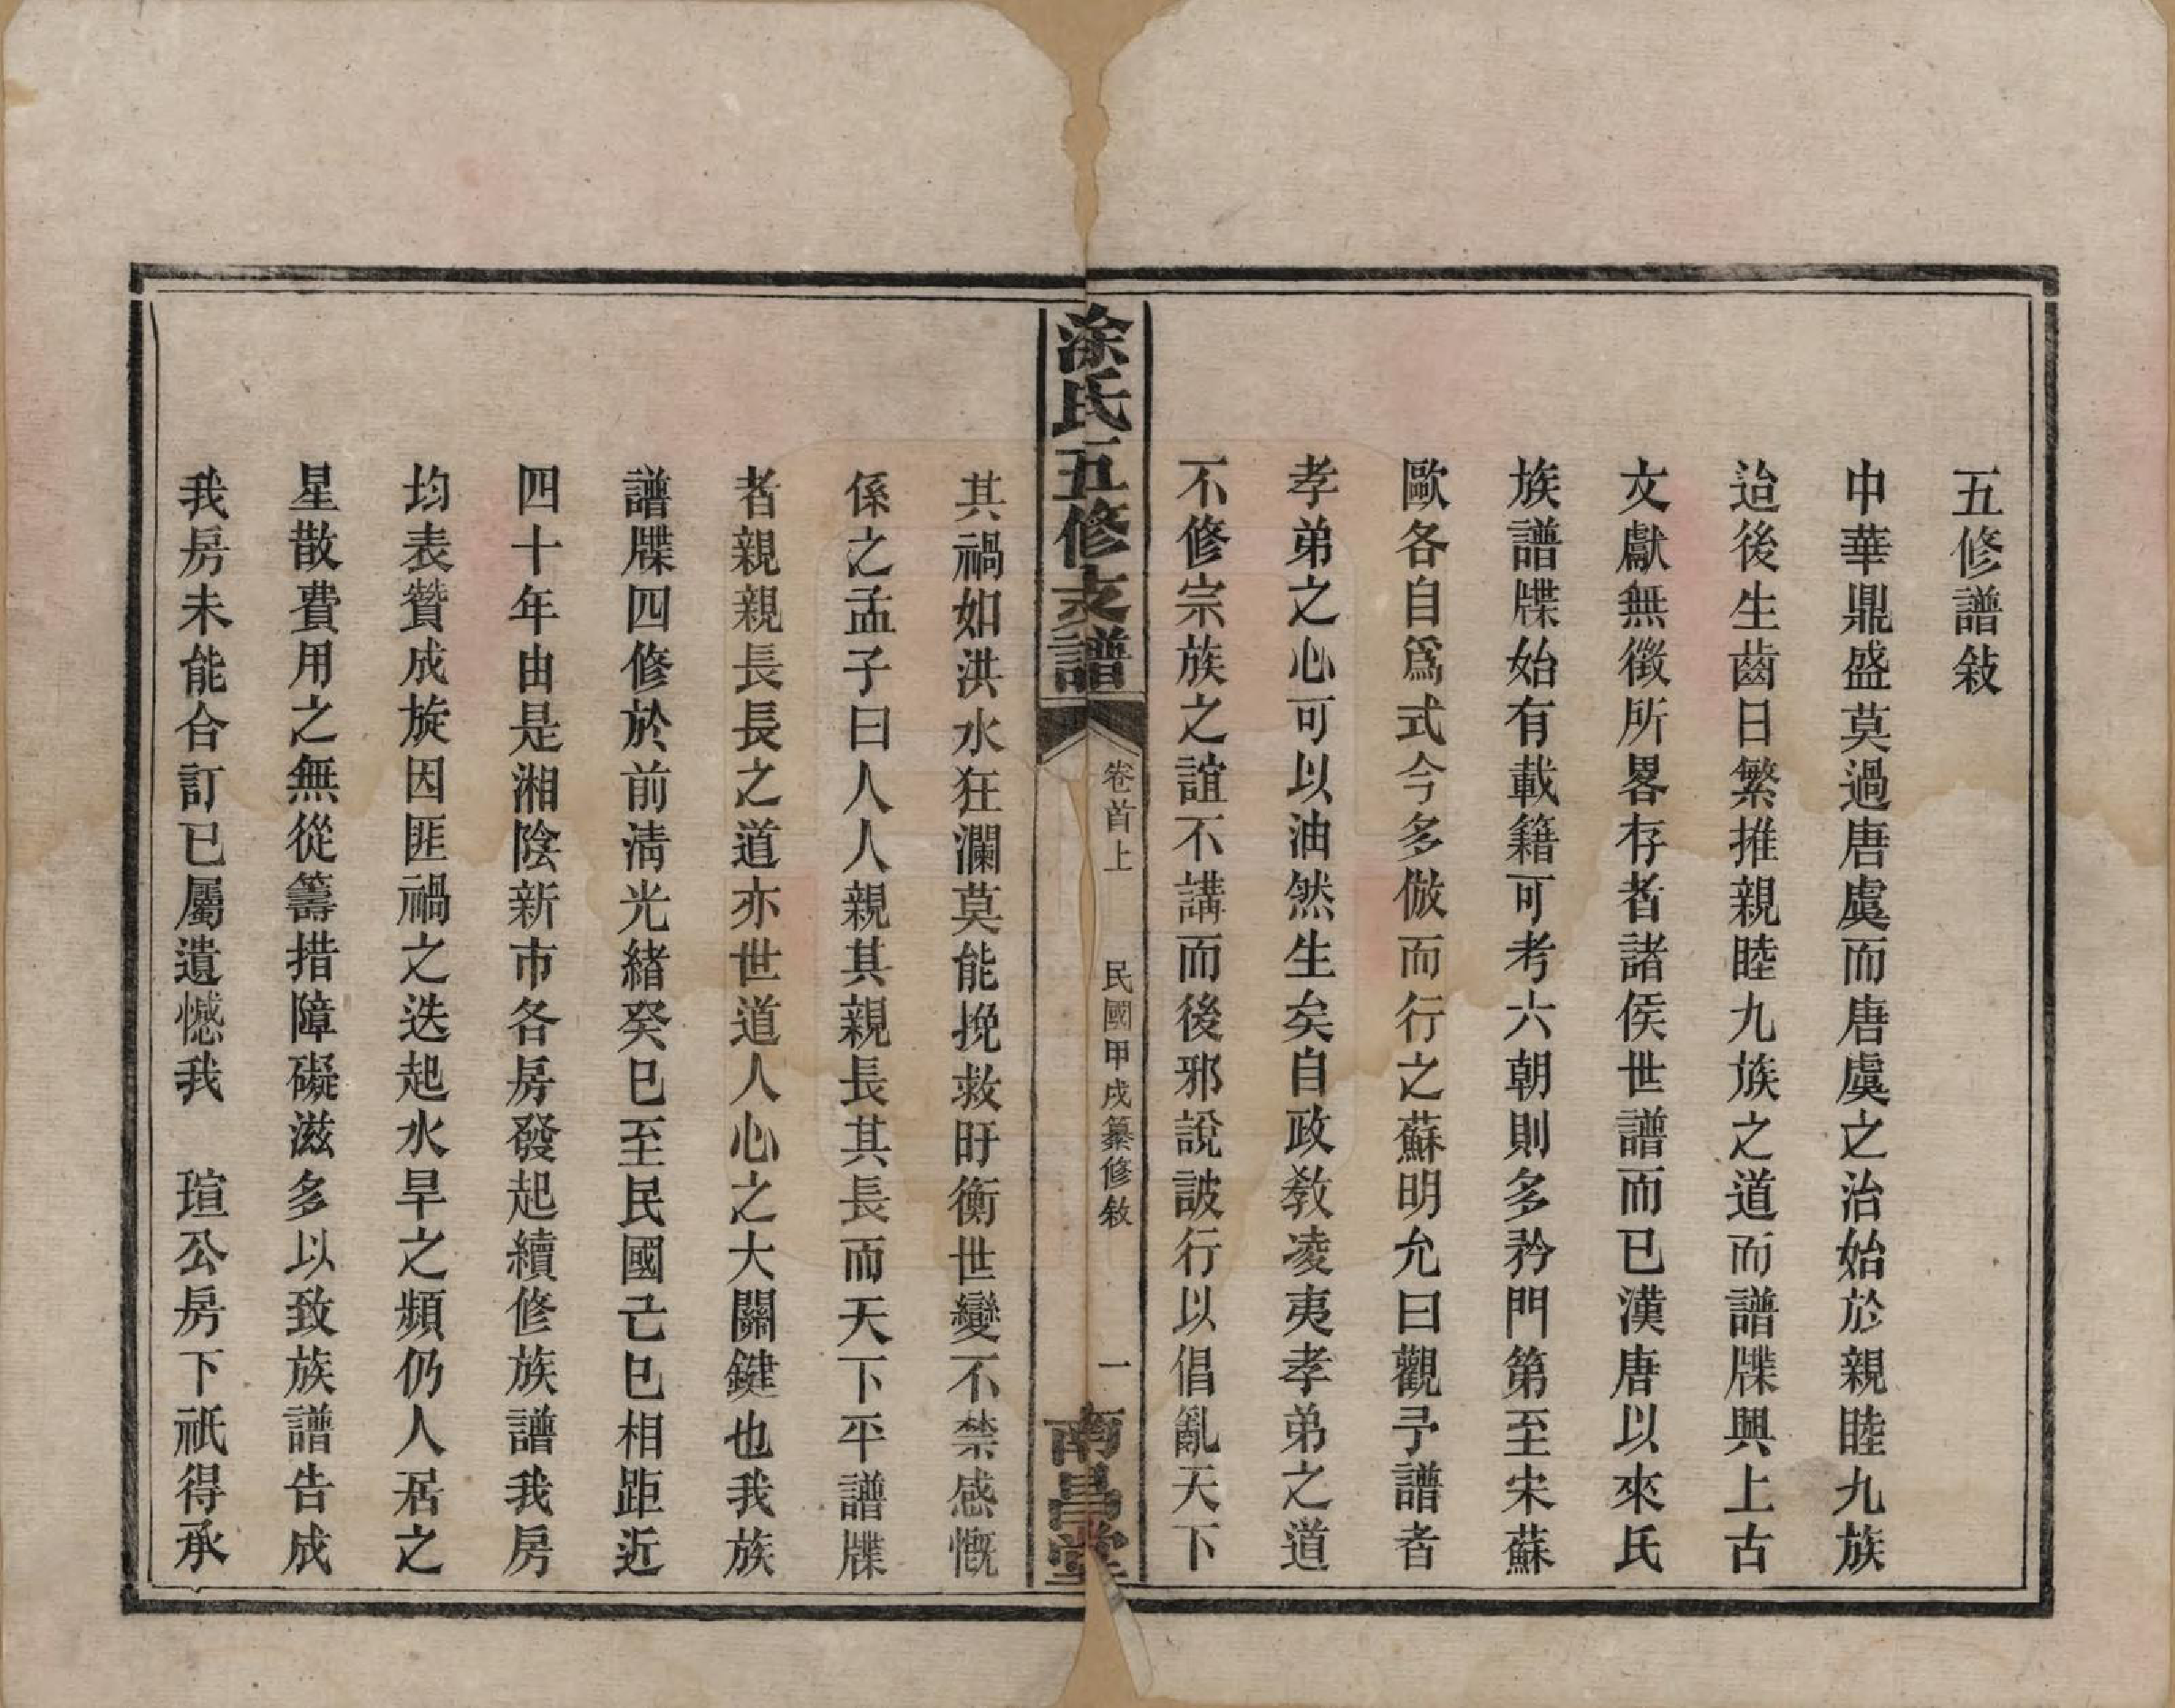 五修譜敍
中華鼎盛莫過唐虞而唐虞之治始於親睦九族
迨後生齒日繁推親睦九族之道而譜牒興上古
文獻無徵所畧存者諸侯世譜而已漢唐以來氏
族譜牒始有載籍可考六朝則多矜門第至宋蘇
歐各自爲式今多倣而行之蘇明允曰觀予譜者
孝弟之心可以油然生矣自政敎凌夷孝弟之道
不修宗族之誼不講而後邪說詖行以倡亂天下
涂氏五修支譜
卷首上
民國甲戌纂修敘
一
南昌堂
其禍如洪水狂瀾莫能挽救盱衡世變不禁感慨
係之孟子曰人人親其親長其長而天下平譜牒
者親親長長之道亦世道人心之大關鍵也我族
譜牒四修於前淸光緖癸巳至民國己巳相距近
四十年由是湘陰新市各房發起續修族譜我房
均表贊成旋因匪禍之迭起水旱之頻仍人居之
星散費用之無從籌措障礙滋多以致族譜告成
我房未能合訂已屬遺憾我　瑄公房下祇得承